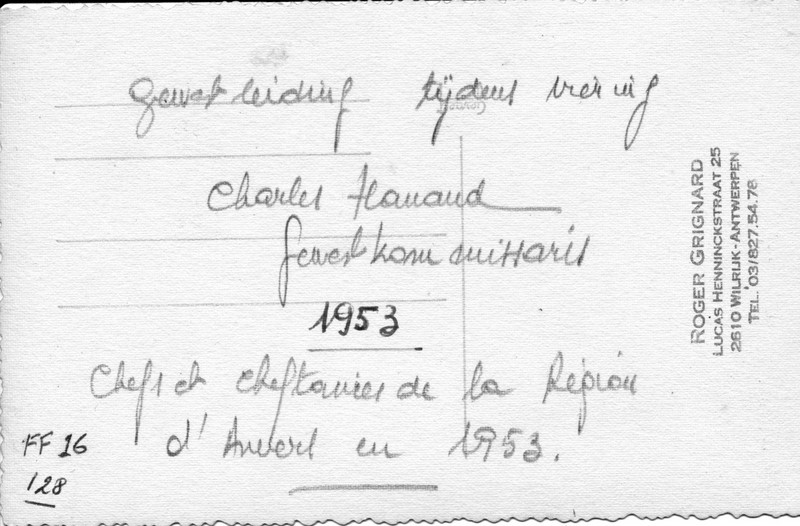 Gewestleiding tijdens viering
Charles
Gewestkommissaris
1953
Chefs et cheftaines de la Région
d'Anvers en 1953.
FF 16
128
ROGER GRIGNARD
LUCAS HENNINCKSTRAAT 25
2610 WILRIJK-ANTWERPEN
TEL. 03/827.54.78